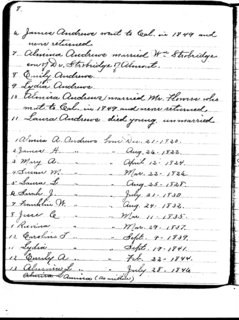 8.
6 James Andrews went to Cal. in 1849 and
never returned.
7 Almina Andrews married Wm Strobridge
son of Dr. Strobridge of Almont.
8 Emily Andrews
9 Lydia Andrews
10 Almira Andrews married Mr. who
went to Cal. in 1849 and never returned.
11 Laura Andrews died young unmarried
1 A. Andrews born Dec. 21-1820.
2 James H. " Aug. 26-1822.
3 Mary A. " April 12-1824.
4 M. " Mar. 22-1826.
5 Laura L. " Aug. 25-1828.
6 Sarah J. " July 21-1830.
7 Franklin W. " Aug. 24-1832.
8 Jesse C. " Mar. 11-1835.
9 " Mar. 29-1837.
10 Caroline T. " Sept. 9-1839.
11 Lydia " Sept. 19-1841.
12 Emily A. " Feb. 22-1844.
13 " July 28-1846